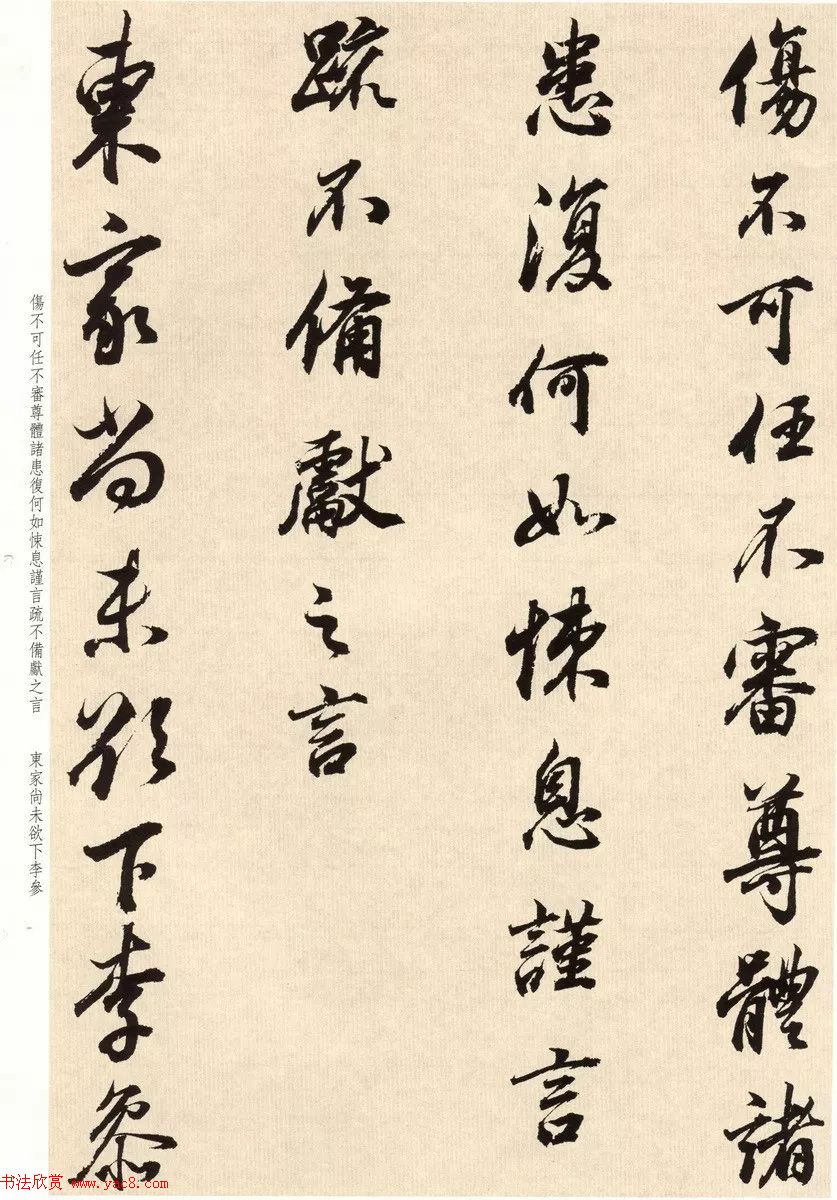 傷不可任不審尊體諸
患復何如悚息謹言
疏不備獻之言
東家尚未欲下李參
傷不可任不審尊體諸患復何如悚息謹言疏不備獻之言　東家尚未欲下李參
书法欣赏 www.yac8.com